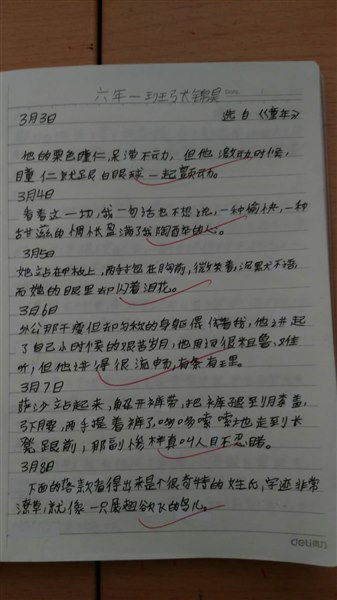 六年一班 张锦昊
3月3日 选自《童年》
他的栗色瞳仁,呆滞不动,但他激动时候,
瞳仁就跟白眼球一起颤动。
3月4日
看着这一切,我一句话也不想说,一种愉快,一种
甜滋的惆怅盈满了我陶酉年的心。
3月5日
她站在甲板上,两手包在胸前,微笑着,沉默不语,
而她的眼里却闪着泪花。
3月6日
外公那干瘦但却匀称的身躯偎依着我,他讲起
了自己小时候的艰苦岁月,他用词很粗鲁、难
听,但他讲得很流畅,有条有理。
3月7日
萨沙站起来,解开裤带,把裤退到膝盖,
弓下腰,两手提着裤子哆哆嗦嗦地走到长
凳跟前,那副模样真叫人目不忍睹。
3月8日
下面的落款看得出来是个很奇特的姓氏,字迹非常
潦草,就像一只展翅欲飞的鸟儿。
deli得力